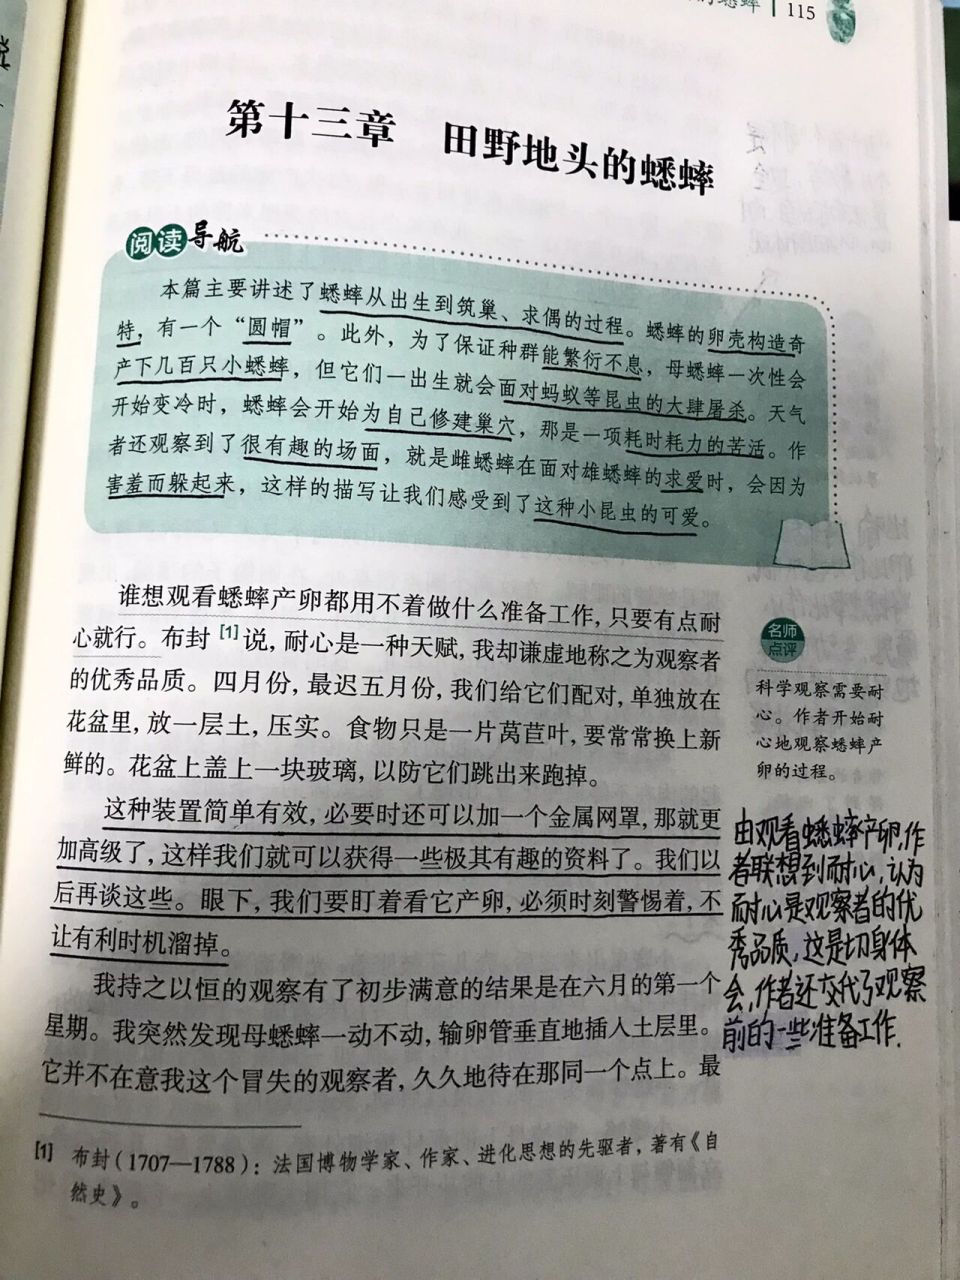 的蟋蟀 | 115
第十三章 田野地头的蟋蟀
阅读导航
本篇主要讲述了蟋蟀从出生到筑巢、求偶的过程。蟋蟀的卵壳构造奇
特，有一个“圆帽”。此外，为了保证种群能繁衍不息，母蟋蟀一次性会
产下几百只小蟋蟀，但它们一出生就会面对蚂蚁等昆虫的大肆屠杀。天气
开始变冷时，蟋蟀会开始为自己修建巢穴，那是一项耗时耗力的苦活。作
者还观察到了很有趣的场面，就是雌蟋蟀在面对雄蟋蟀的求爱时，会因为
害羞而躲起来，这样的描写让我们感受到了这种小昆虫的可爱。
谁想观看蟋蟀产卵都用不着做什么准备工作，只要有点耐
心就行。布封[1]说，耐心是一种天赋，我却谦虚地称之为观察者
的优秀品质。四月份，最迟五月份，我们给它们配对，单独放在
花盆里，放一层土，压实。食物只是一片莴苣叶，要常常换上新
鲜的。花盆上盖上一块玻璃，以防它们跳出来跑掉。
这种装置简单有效，必要时还可以加一个金属网罩，那就更
加高级了，这样我们就可以获得一些极其有趣的资料了。我们以
后再谈这些。眼下，我们要盯着看它产卵，必须时刻警惕着，不
让有利时机溜掉。
我持之以恒的观察有了初步满意的结果是在六月的第一个
星期。我突然发现母蟋蟀一动不动，输卵管垂直地插入土层里。
它并不在意我这个冒失的观察者，久久地待在那同一个点上。最
名师
点评
科学观察需要耐
心。作者开始耐
心地观察蟋蟀产
卵的过程。
由观看蟋蟀产卵，作
者联想到耐心，认为
耐心是观察者的优
秀品质，这是切身体
会，作者还交代了观察
前的一些准备工作.
[1] 布封（1707—1788）：法国博物学家、作家、进化思想的先驱者，著有《自
然史》。